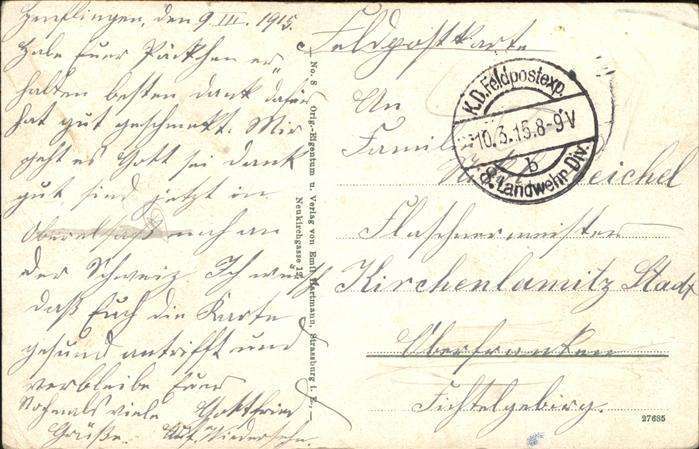 den 9. III. 1915.
Habe Euer Päckchen er
halten besten dank dafür
hat gut geschmeckt. Mir
geht es Gott sei dank
gut sind jetzt in
Oberelsaß nach an
der Schweiz Ich wünsch
daß Euch die Karte
gesund antrifft und
verbleibe Euer
Nochmals viele Gottfried
Grüße. Auf Wiedersehn.
No. 8 Orig.-Eigentum u. Verlag von Emil Hartmann, Strassburg i. E.,
Neukirchgasse 12
Feldpostkarte
An
Familie
eichel
Flaschnermeister
Kirchenlamitz Stadt
Oberfranken
Fichtelgebirg.
K.D. Feldpostexp.
10.3.15.8-9V
b
8. Landwehr Div.
27635